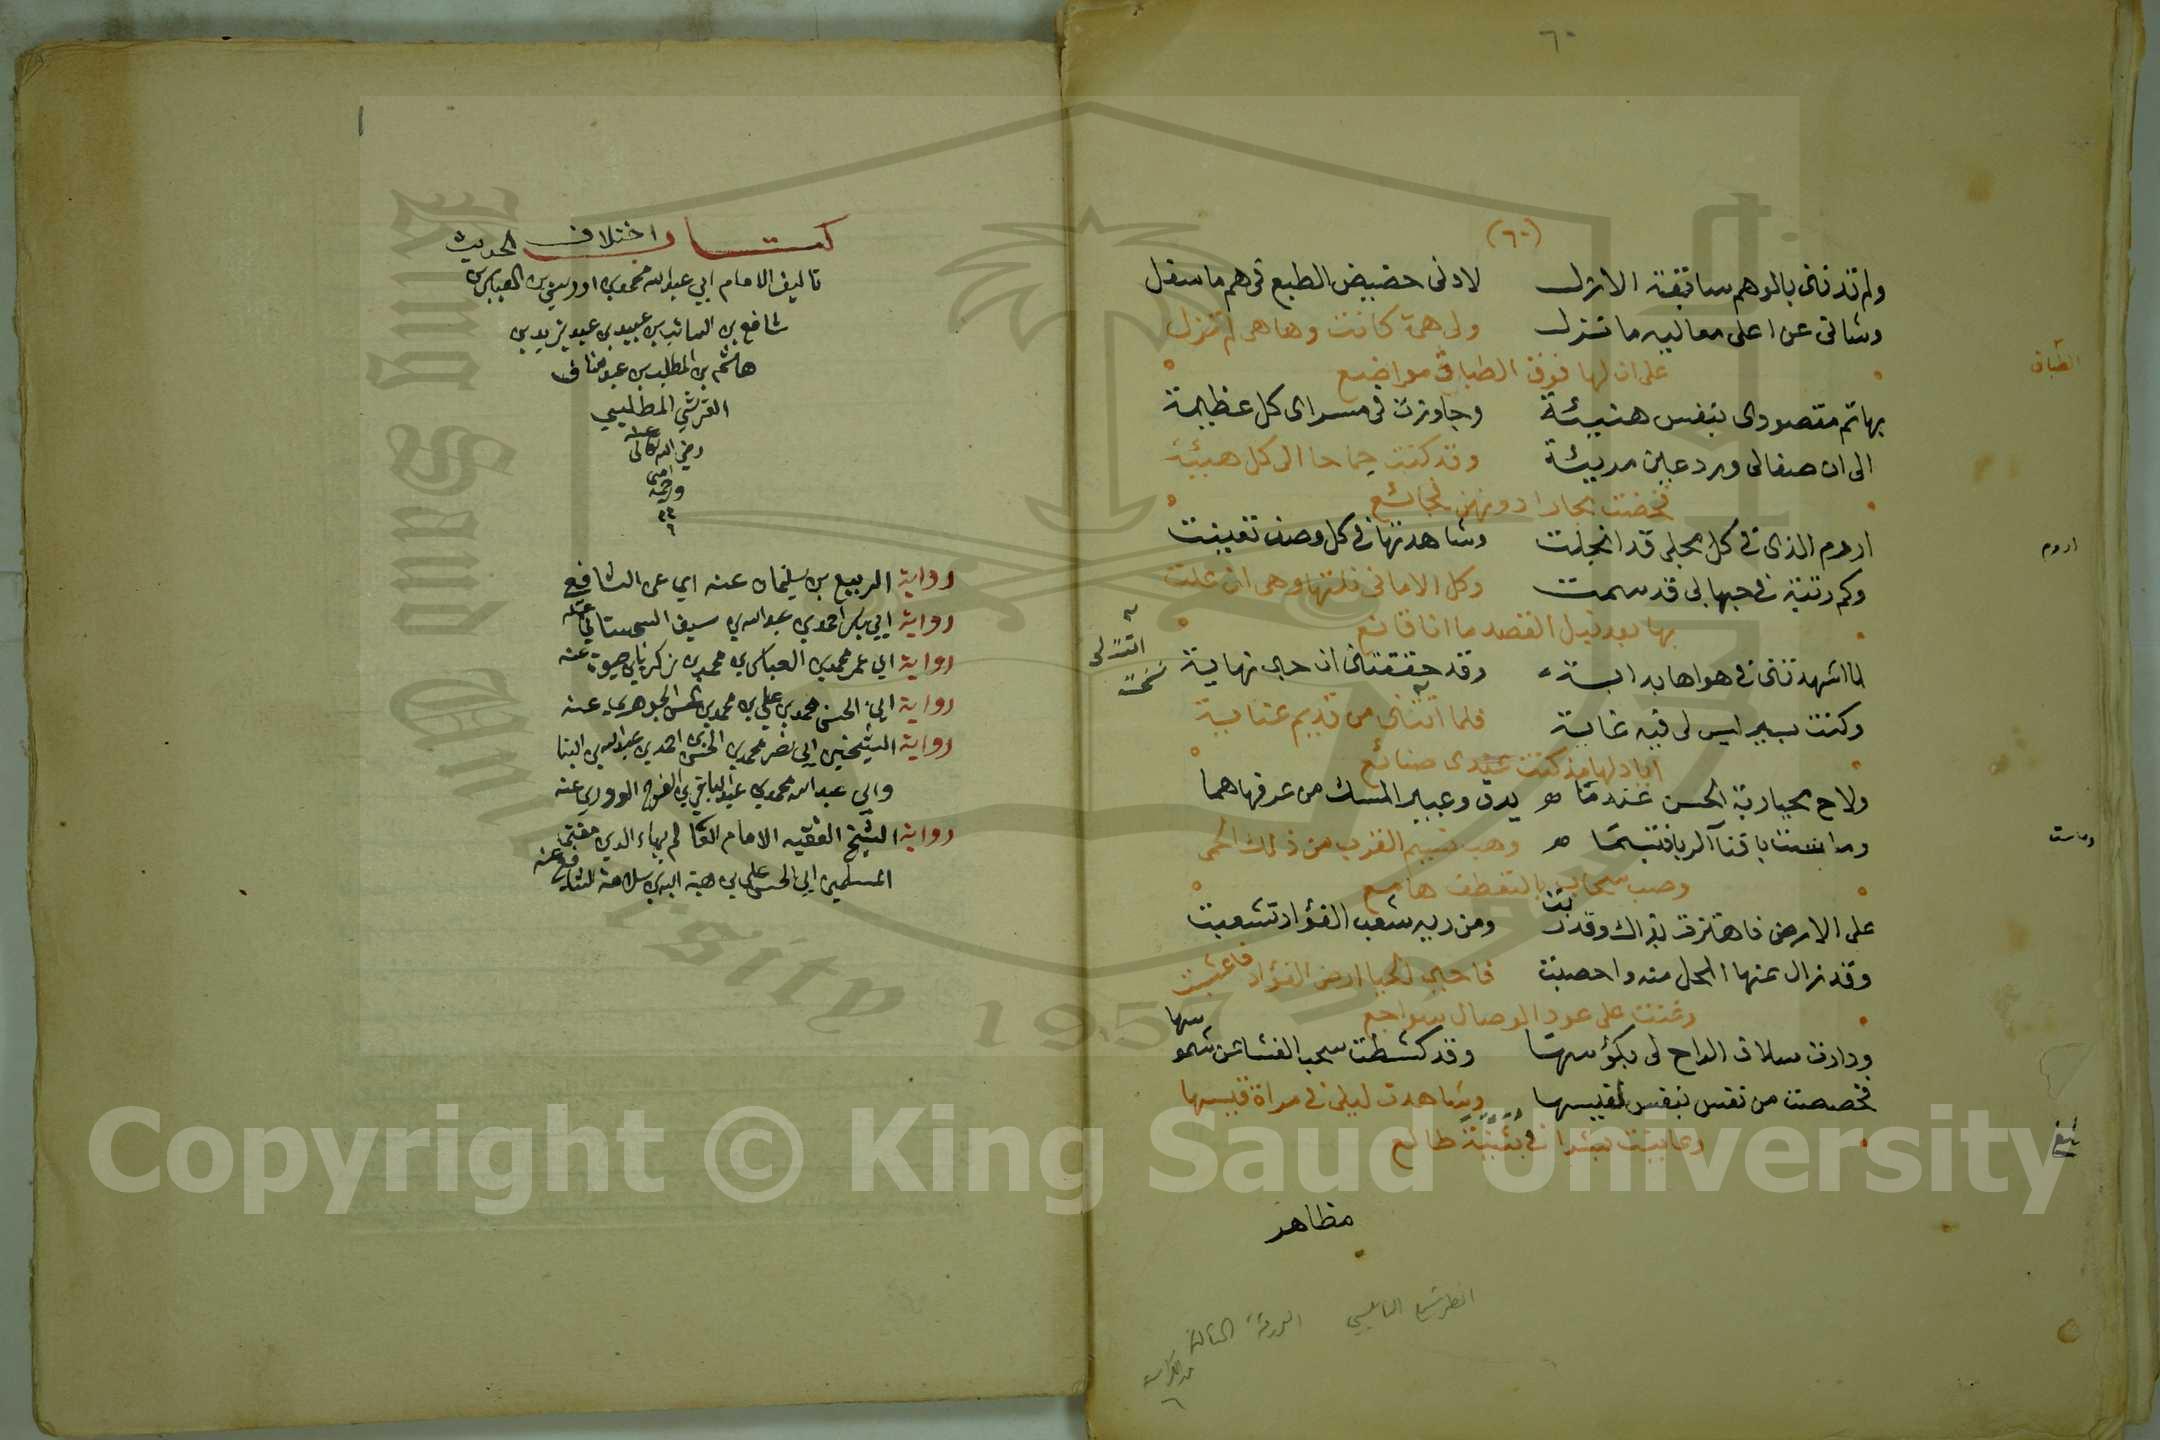 ٦٠
(٦٠)
ولم تدنني بالوهم سابقة الازل لادنى حضيض الطبع في هم ما سفل
وشانى عن اعلى معاليه ما تنزل ولى همة كانت وها هى لم تنزل
على ان لها فوق الطباق مواضيع
الطباق
بها تم مقصودى بنفس هنيئة وجاوزت فى مسراى كل عظيمة
الى ان صفالى ورد عين مريئة وقد كنت جماحا الى كل هيئة
فخضت بحارا دونهن فجائع
اروم الذى فى كل مجلى قد انجلت وشاهدتها فى كل وصف تعينت
اروم
وكم رتبة فى حبها لى قد سمت وكل الامانى نلتها وهى ان علت
بها بعد نيل القصد ما انا قانع
لما اشهدتنى فى هواها بداية وقد حققتنى ان حبى نهاية
وكنت بسير ليس لى فيه غاية فلما انثنى من قديم عناية
اياد لها مذ كنت عندى صنائع
ولاح بجيارية الحسن عندما يدق وعبير المسك من عرفها هما
وما ست باقنا الربا فتبسما وهب نسيم القرب من ذلك الحمى
وماست
وصب سحاب بالتعطف هامع
على الارض فاهتزت بذاك وقد ربت ومن ريه شعب الفؤاد تشعبت
وقد زال عنها المحل منه واخصبت فاحيى الحيا ارض الفؤاد فاعشبت
وغنت على عود الوصال سواجع
ودارت سلاف الراح لى بكؤسها وقد كشطت سحب الغشا عن شموسها
فخصصت من نفس بنفس نفيسها وشاهدت ليلى فى مراة قيسها
وعاينت بشرا فى بثينة طالع
مظاهر
الورقة الثالثة
٦
١
كتاب اختلاف الحديث
تاليف الامام ابي عبدالله محمد بن ادريس بن العباس بن
شافع بن السائب بن عبيد بن عبد يزيد بن
هاشم بن المطلب بن عبد مناف
القرشي المطلبي
رضي الله تعالى عنه
ورحمه امين
رواية الربيع بن سليمان عنه اي عن الشافعي
رواية ابي بكر احمد بن عبدالله بن سيف السجستاني عنه
رواية ابي عمر محمد بن العباس بن محمد بن زكريا بن حيوية عنه
رواية ابي الحسن محمد بن علي بن محمد بن الحسن الجوهري عنه
رواية الشيخين ابي نصر محمد بن الحسن بن احمد بن عبدالله بن البنا
وابي عبدالله محمد بن عبدالباقي بن الفرج الدوري عنه
رواية الشيخ الفقيه الامام العالم بهاء الدين مفتي
المسلمين ابي الحسن علي بن هبة الله بن سلامة الشافعي عنه
King Saud University 1957
Copyright © King Saud University